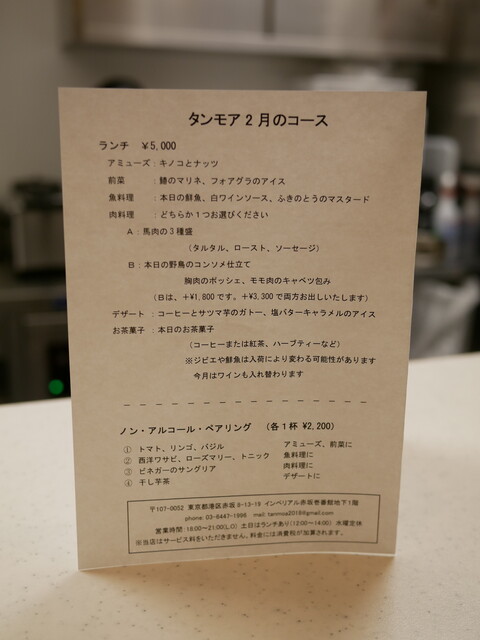 タンモア2月のコース
ランチ ￥5,000
アミューズ：キノコとナッツ
前菜 ：鰆のマリネ、フォアグラのアイス
魚料理 ：本日の鮮魚、白ワインソース、ふきのとうのマスタード
肉料理 ：どちらか1つお選びください
A：馬肉の3種盛
（タルタル、ロースト、ソーセージ）
B：本日の野鳥のコンソメ仕立て
胸肉のポッシェ、モモ肉のキャベツ包み
（Bは、+¥1,800です。+¥3,300で両方お出しいたします）
デザート ：コーヒーとサツマ芋のガトー、塩バターキャラメルのアイス
お茶菓子 ：本日のお茶菓子
（コーヒーまたは紅茶、ハーブティーなど）
※ジビエや鮮魚は入荷により変わる可能性があります
今月はワインも入れ替わります
ノン・アルコール・ペアリング （各1杯 ¥2,200）
① トマト、リンゴ、バジル アミューズ、前菜に
② 西洋ワサビ、ローズマリー、トニック 魚料理に
③ ビネガーのサングリア 肉料理に
④ 干し芋茶 デザートに
〒107-0052 東京都港区赤坂8-13-19 インペリアル赤坂壱番館地下1階
phone: 03-6447-1996 mail: tanmoa2018@gmail.com
営業時間：18:00～21:00(L.O) 土日はランチあり(12:00～14:00) 水曜定休
※当店はサービス料をいただきません。料金には消費税が加算されます。